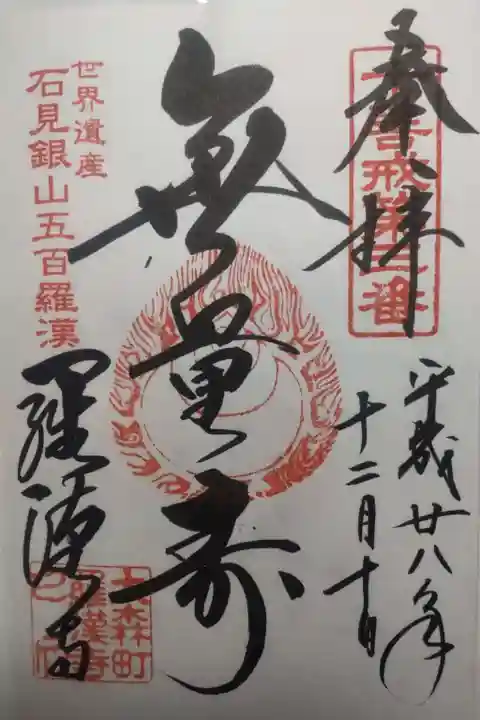 奉拝
善戒第
番
平成廿八年
十二月十日
無量寿
世界遺産
石見銀山五百羅漢
羅漢寺
大森町
羅漢寺
之印